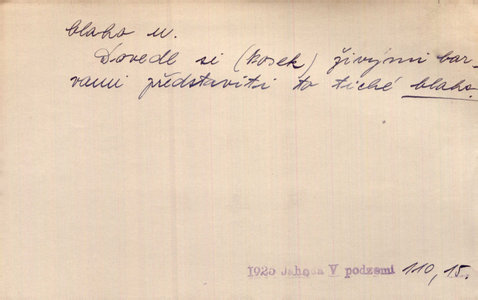 blaho n.
Dovedl si (Kosek) živými bar-
vami představiti to tiché blaho.
1925 Jahoda V podzemí 110, 15.